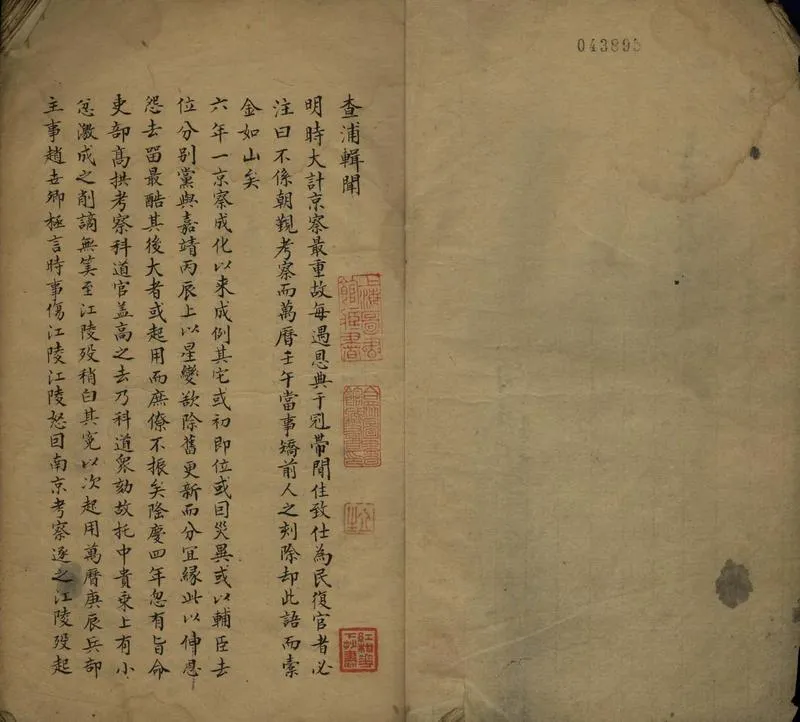 查浦輯聞
明時大計京察最重故每遇恩典于冠帶閒住致仕為民復官者必
注曰不係朝覲考察而萬曆壬午當事矯前人之刻除却此語而索
金如山矣
六年一京察成化以來成例其它或初即位或囙災異或以輔臣去
位分別黨與嘉靖丙辰上以星變欲除舊更新而分宜緣此以伸恩
怨去留最酷其後大者或起用而庶僚不振矣隆慶四年忽有旨命
吏部高拱考察科道官盖高之去乃科道眾劾故托中貴乘上有小
忿激成之削謫無筭至江陵歿稍白其寃以次起用萬曆庚辰兵部
主事趙世卿極言時事傷江陵江陵怒囙南京考察逐之江陵歿起
上海圖書館藏書
紅柑草下抄書
043895